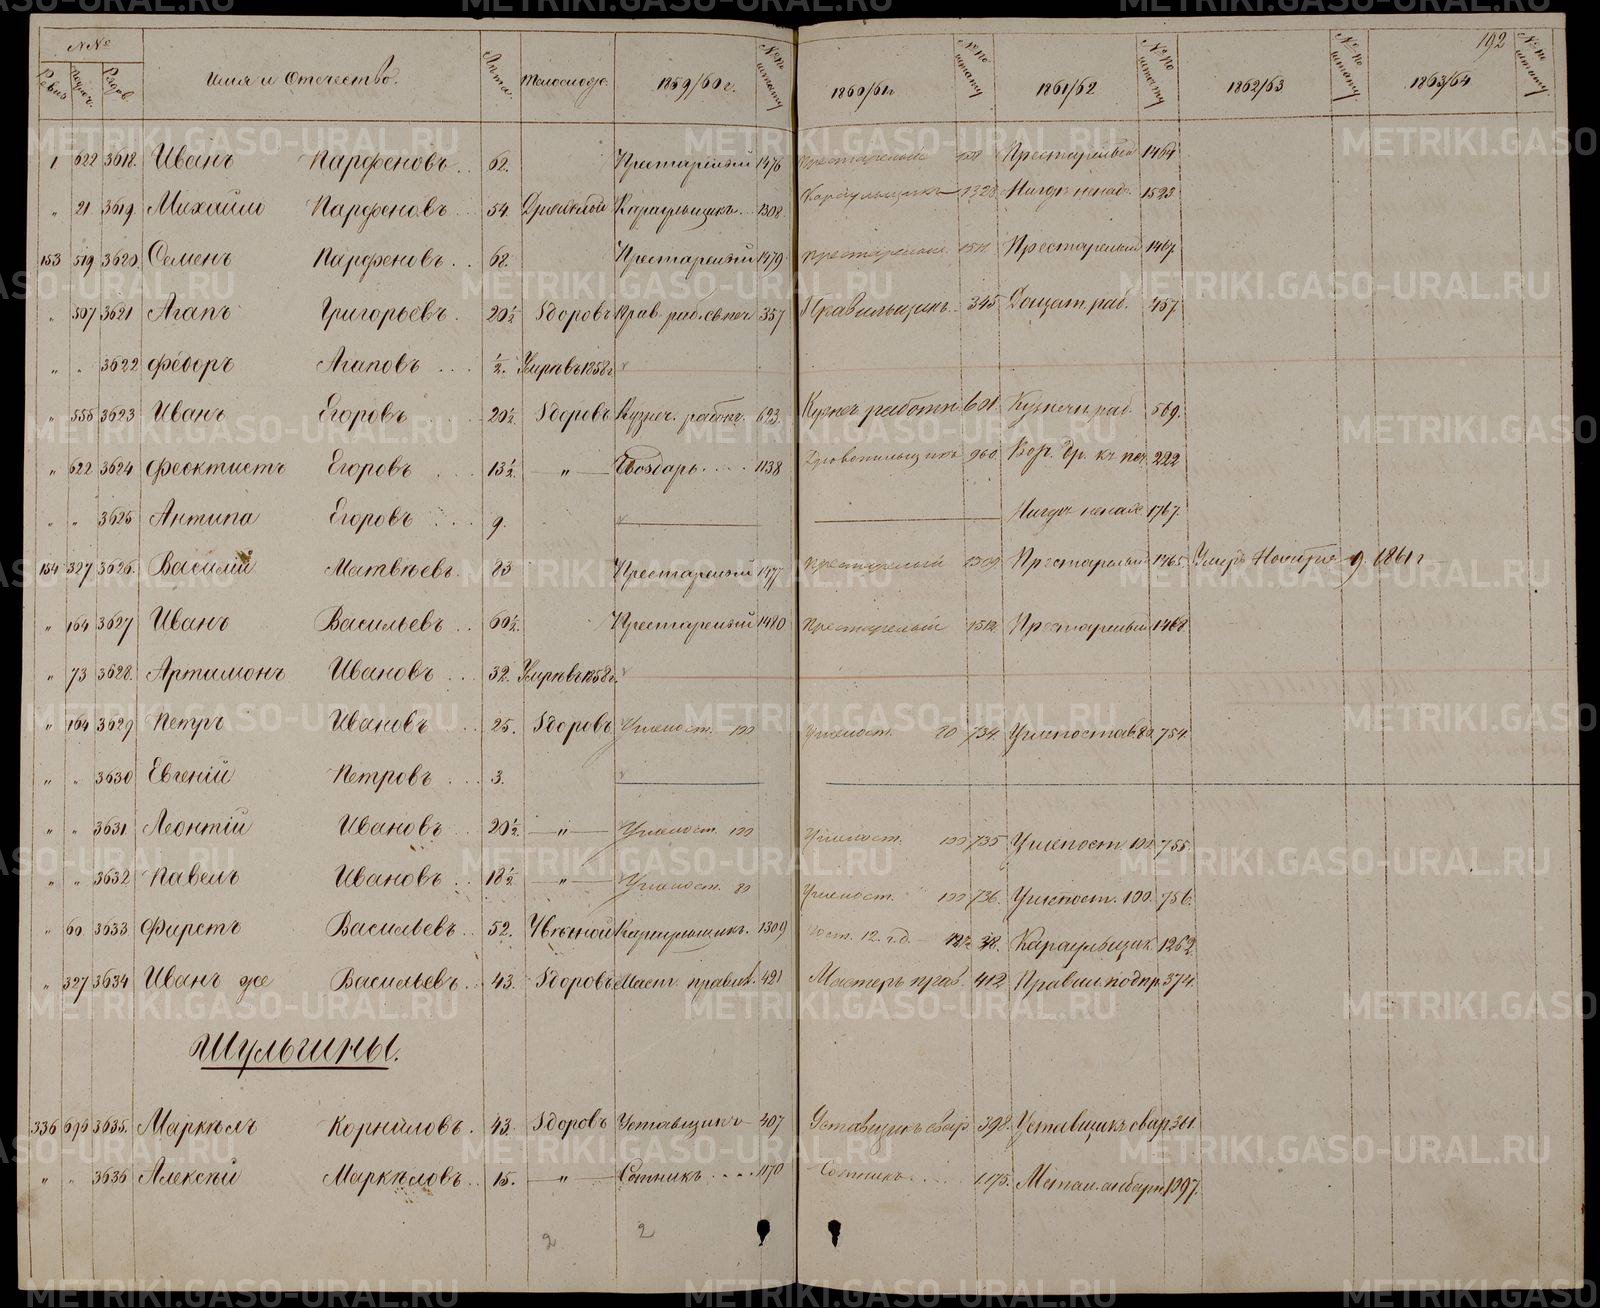 192
N№
Ревиз Подуш. Рядов. Имя и Отечество. Лѣта. Телослож. 1859/60 г. №№ по штату 1860/61 г №№ по штату 1861/62 №№ по штату 1862/63 №№ по штату 1863/64 №№ по штату
1 622 3618. Иванъ Парфеновъ .. 62. Престарелый 1476 престарелый Престарелый 1464
„ 21 3619. Михайло Парфеновъ ... 54. Дряхлый Караульщикъ ... 1308. Караульщикъ 1328 Нигде ненах. 1523
153 519 3620. Семенъ Парфеновъ .. 68. Престарелый 1479 престарелый 1511 Престарелый 1467
„ 507 3621 Агапъ Григорьевъ . 20½ Здоровъ Прав. раб. свеч 357 Правильщикъ 345 Дощат. раб. 457
„ „ 3622 Федоръ Агаповъ ... ½. Умеръ въ 1858 г
„ 556 3623 Иванъ Егоровъ ... 20½. Здоровъ Кузнеч. работн. 623. Кузнеч работн. 601. Кузнечн. раб. 569.
„ 622 3624 Феоктистъ Егоровъ ... 13½. „ Гвоздарь .... 1138 Дровопильщикъ 960. Воз. др. къ печ. 222
„ „ 3625 Антипа Егоровъ .... 9. Нигде ненах 1767.
154 327 3626. Василій Матвѣевъ. 83 Престарелый 1477 престарелый 1509 Престарелый 1465. Умеръ Ноября 9 1861 г
„ 164 3627 Иванъ Васильевъ .. 60½. Престарелый 1480 престарелый 1512 Престарелый 1468
„ 73 3628. Артамонъ Ивановъ ... 32. Умеръ въ 1858 г.
„ 164 3629 Петръ Ивановъ ... 25. Здоровъ Углепост. 100 Углепост. 80 734. Углепостав. 80. 754.
„ „ 3630 Евгеній Петровъ ... 3.
„ „ 3631 Леонтій Ивановъ .. 20½. „ Углепост. 100 Углепост. 100 735 Углепост. 100. 755.
„ „ 3632 Павелъ Ивановъ .. 18½. „ Углепост. 80 Углепост. 100 736. Углепост. 100. 756.
„ 60 3633 Фирстъ Васильевъ .. 52. Увечной Караульщикъ. 1309 12. г.д. Караульщик 1262
„ 327 3634 Иванъ же Васильевъ .. 43. Здоровъ Маст. правил. 421 Мастеръ прав. 412 Правил. подпр. 374.
Шульгины.
336 696 3635. Маркелъ Корниловъ. 43. Здоровъ Уставщикъ 407 Уставщикъ свар 398. Уставщикъ свар. 361.
„ „ 3636 Алексѣй Маркѣловъ .. 15. „ Сотникъ .... 1170 Сотникъ .... 1175. Метал. амбарн. 1397.
2 2